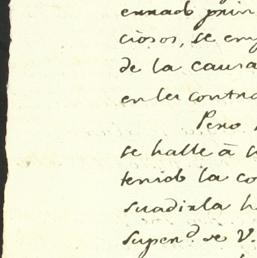 ennado prin
ciosos, se em
de la causa
en les contra
Pero
se halle à
tenido la co
suadirla h
Supend. se V.